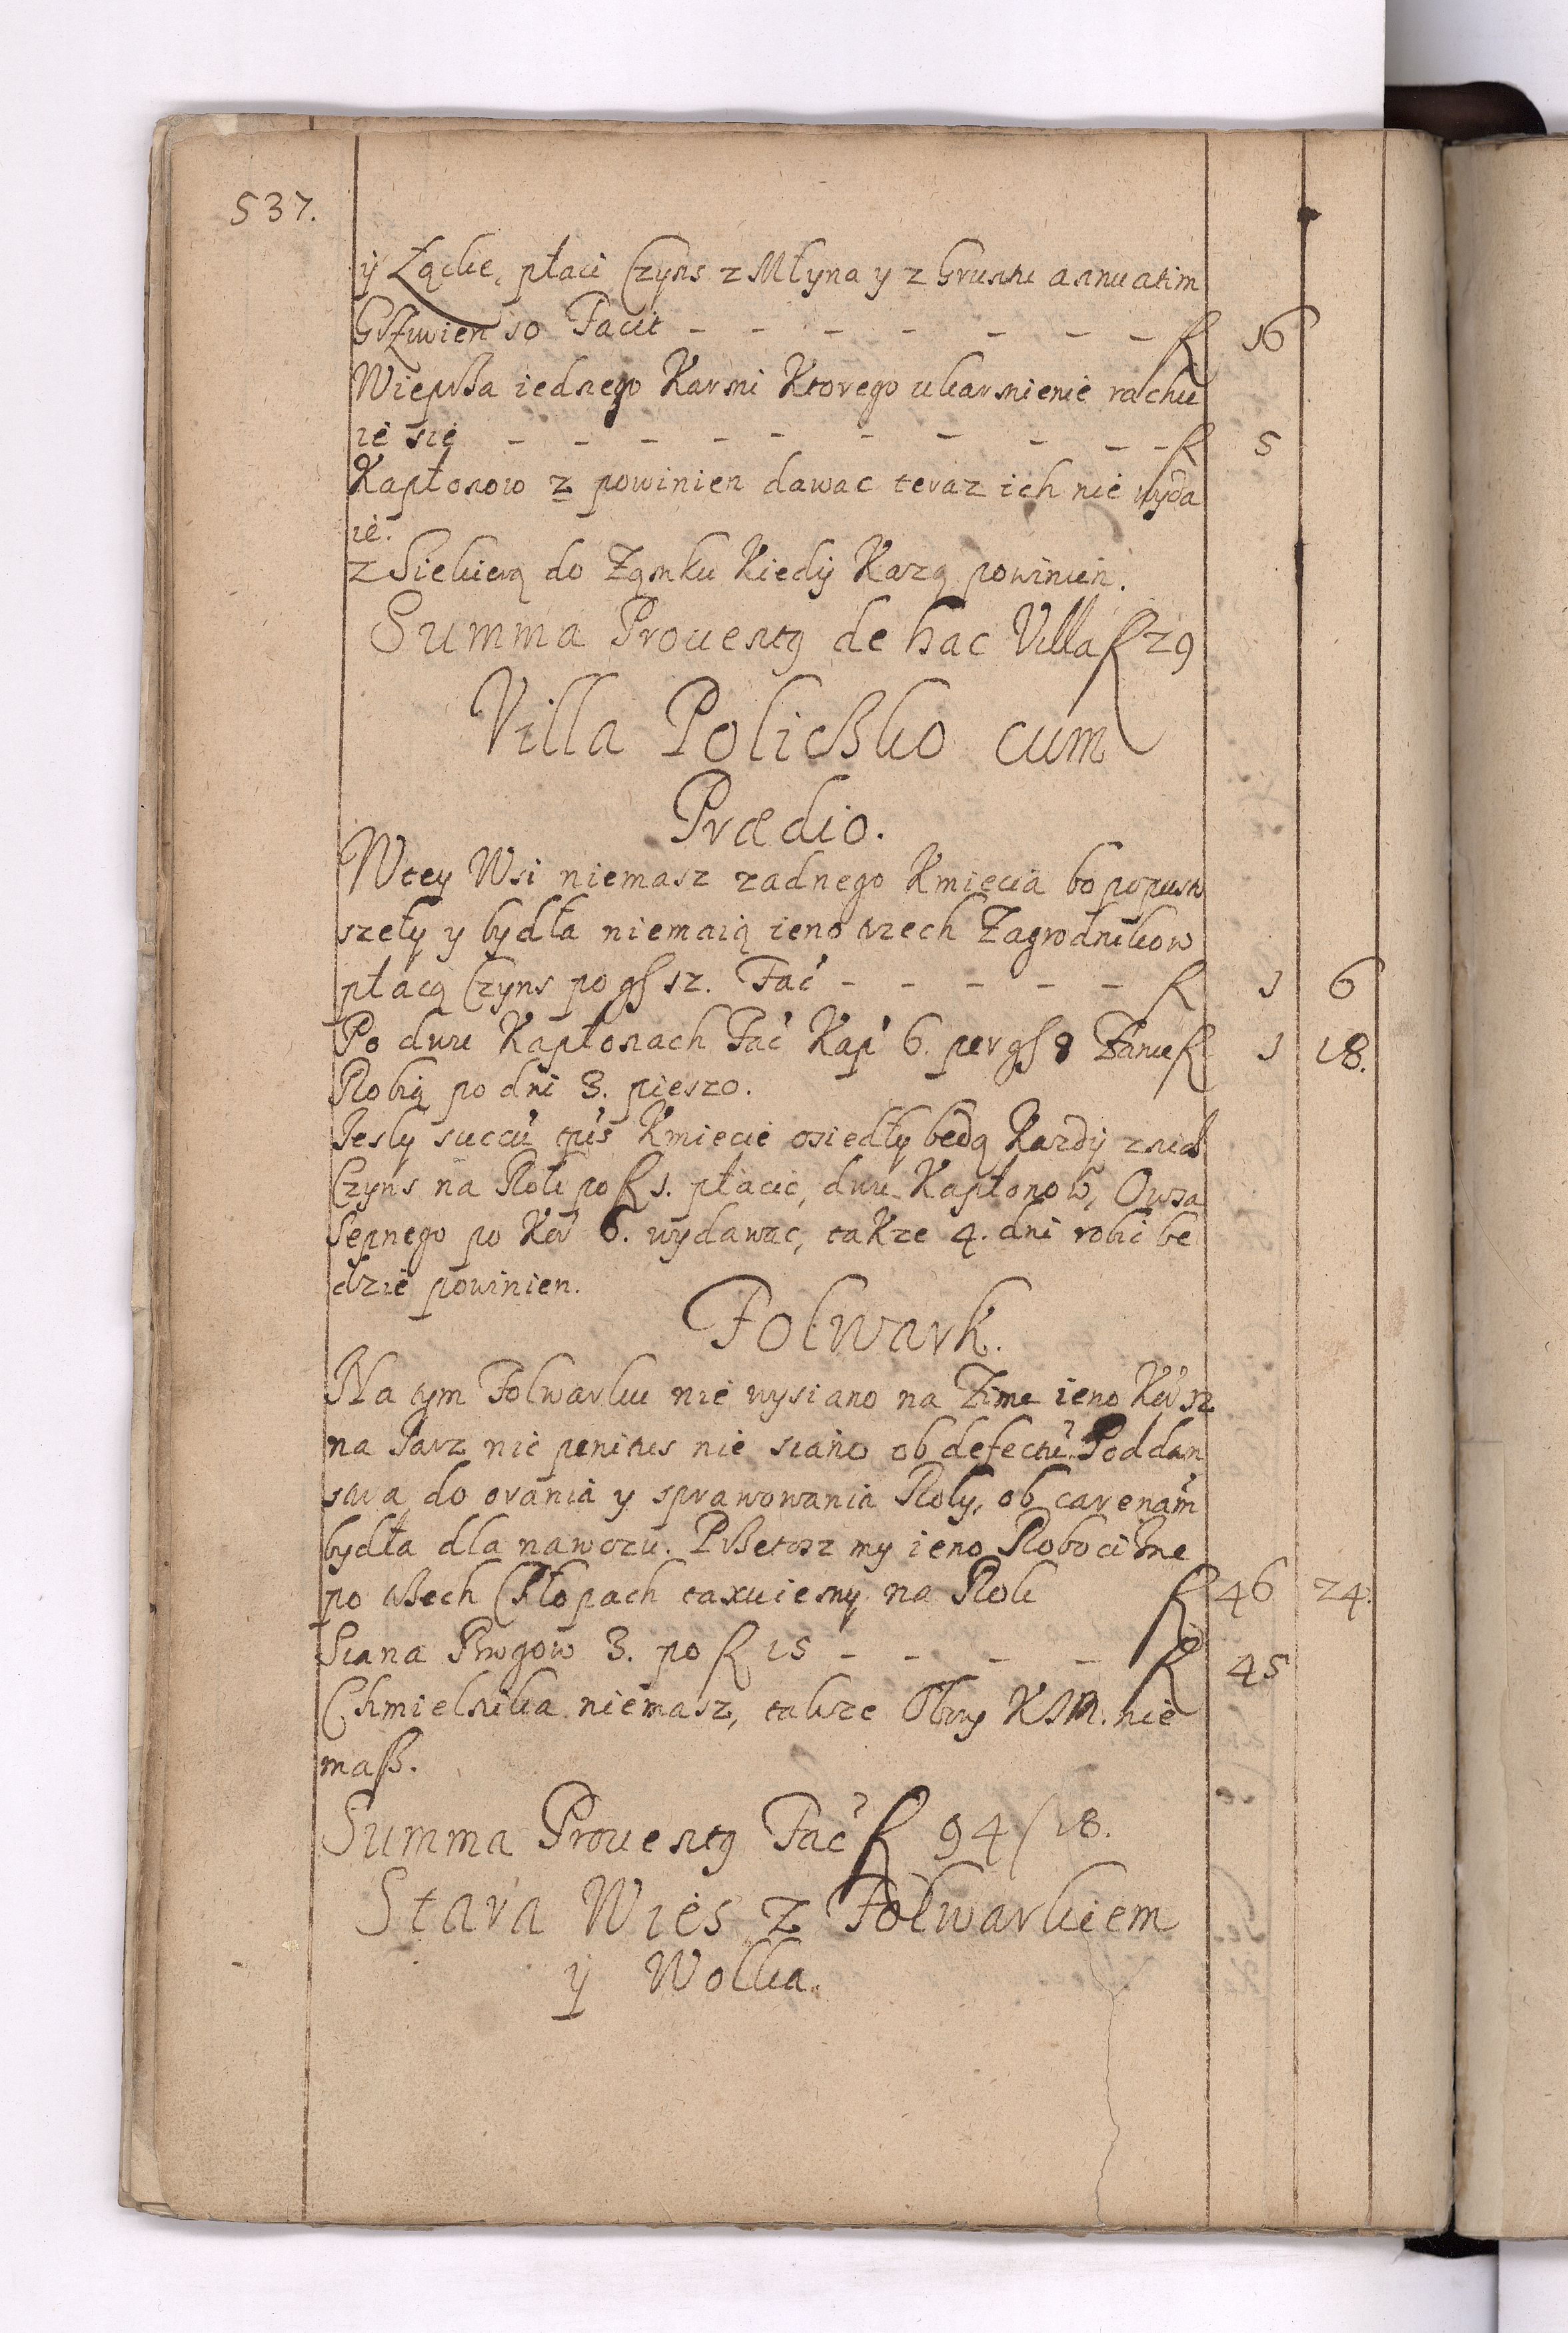 537.
ÿ Łąckę, płaci Czyns z Młyna y z Gruntu annuatim
Grzywien 10 Facit - - - - - - - fl 16
Wieprßa iednego Karmi Ktorego ukarmienie rachu
ie się - - - - - - - - - - fl 5
Kapłonow 2 powinien dawac teraz ich nie wyda
ie.
z Siekierą do Zamku Kiedÿ Każą powinien.
Summa Prouentꝰ de hac Villa fl 29
Villa Policßko cum
Prædio.
W tey Wsi niemasz zadnego Kmiecia bo popust
szeły y bydła niemaią ieno trzech Zagrodnikow
płacą Czyns po gſ 12. Fac̃ - - - - - fl 1 6
Po dwu Kapłonach Fac̃ Kap̃ 6. per gſ 8 Fanu fl 1 18.
Robią po dni 3. pieszo.
Iesly succũ tp̃is Kmiecie osiedły bedą Kazdÿ z nich
Czyns na Rok po fl 1. płacic, dwu Kapłonow, Owsa
Sepnego po Kor̃ 6. wydawac, takze 4. dni robic be
dzie powinien.
Folwark.
Na tym Folwarku nie wysiano na Zime ieno Kor̃ 12
na Iarz nic penitus nie siano ob defectũ Poddan
stwa do orania y sprawowania Roly, ob carentiam
bydła dla nawozu. Prßetosz my ieno Robociznę
po trßech Chłopach taxuiemy na Rok fl 46 24.
Siana Brogow 3. po fl 15 - - - - fl 45
Chmielnika niemasz, takze Obory KIM. nie
maſß.
Summa Prouentꝰ Fac̃ fl 94/18.
Stara Wies z Folwarkiem
ÿ Wolka.